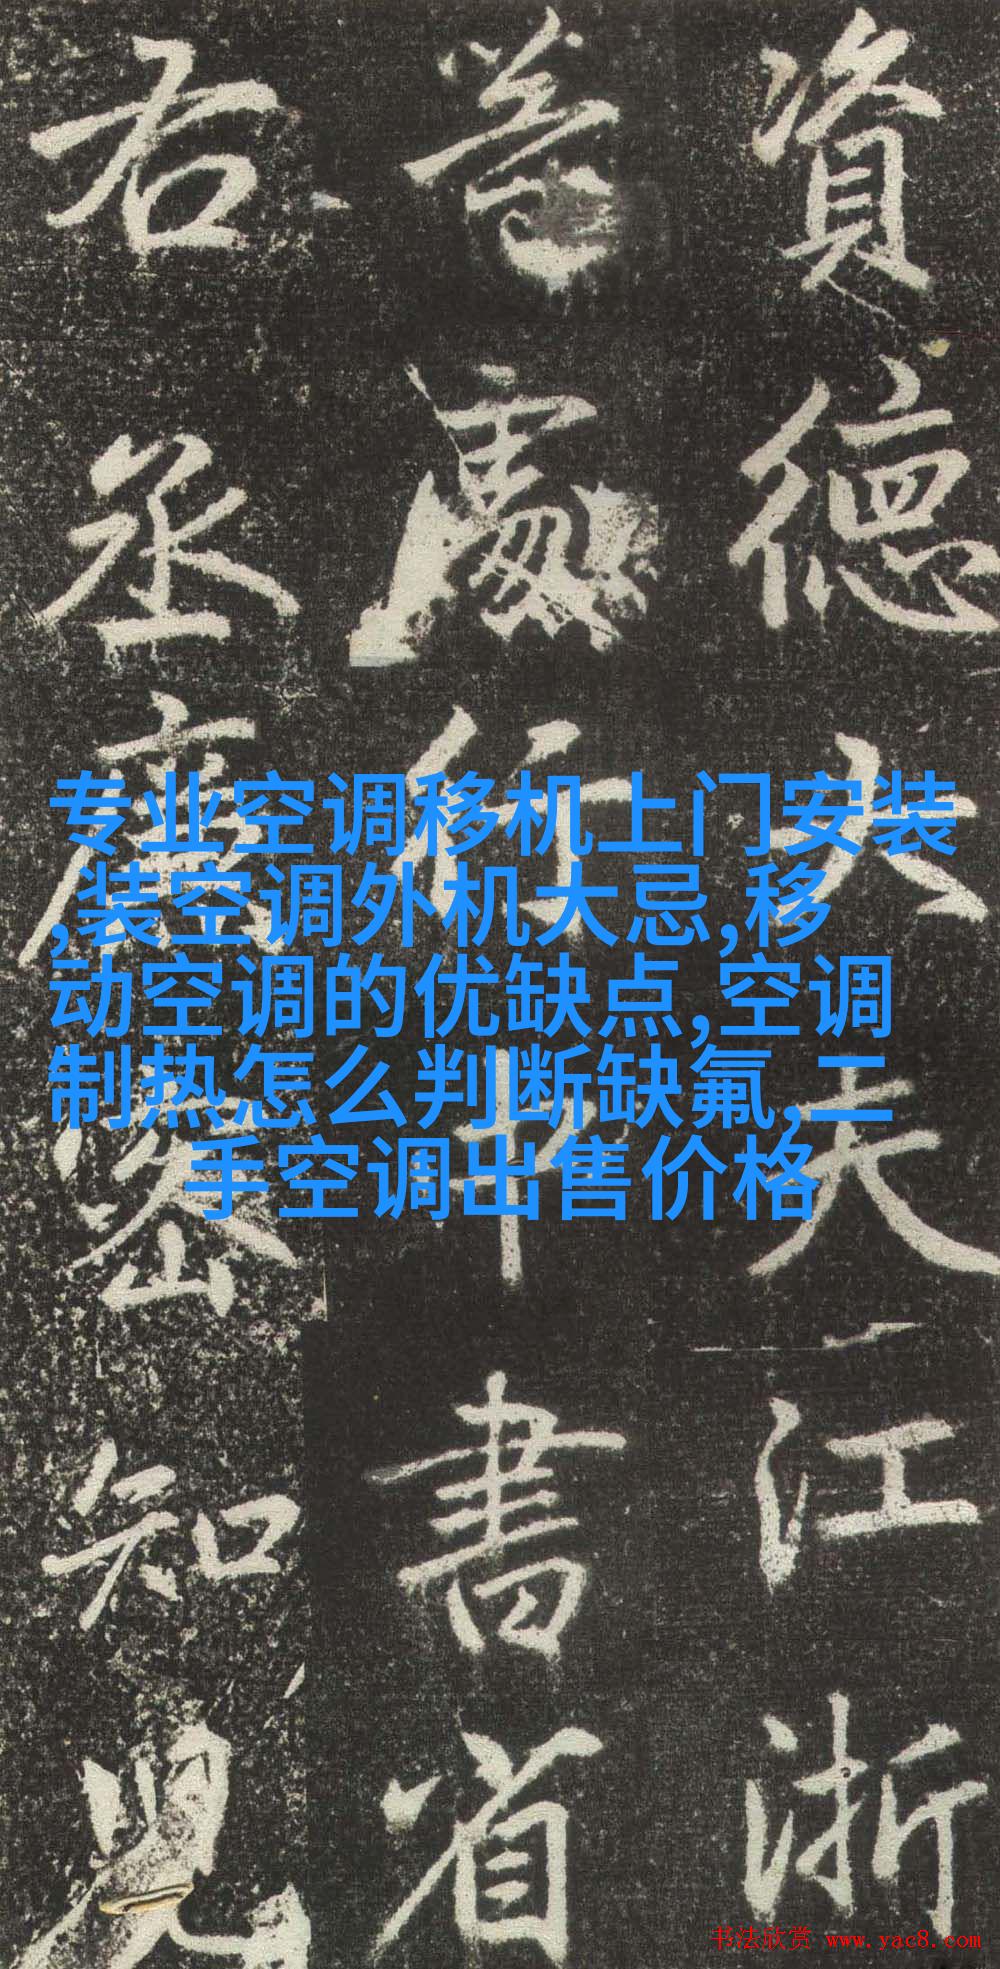 資德大夫江浙
等處行中書省
右丞廉密知兒
专业空调移机上门安装
,装空调外机大忌,移
动空调的优缺点,空调
制热怎么判断缺氟,二
手空调出售价格
书法欣赏 www.yac8.com